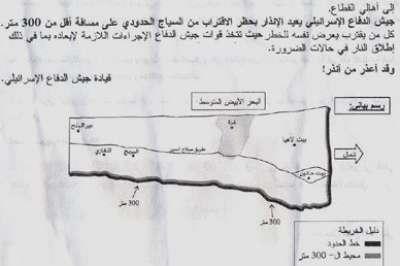 إلى أهالي القطاع.
جيش الدفاع الإسرائيلي يعيد الإنذار بحظر الاقتراب من السياج الحدودي على مسافة أقل من 300 متر.
كل من يقترب يعرض نفسه للخطر حيث تتخذ قوات جيش الدفاع الإجراءات اللازمة لإبعاده بما في ذلك
إطلاق النار في حالات الضرورة.
وقد أعذر من أنذر!
قيادة جيش الدفاع الإسرائيلي.
رسم بياني:
البحر الأبيض المتوسط
غزة
بيت لاهيا
شمال
طريق صلاح الدين
بيت حانون
300 متر
300 متر
دليل الخريطة
خط الحدود
محيط ال- 300 متر